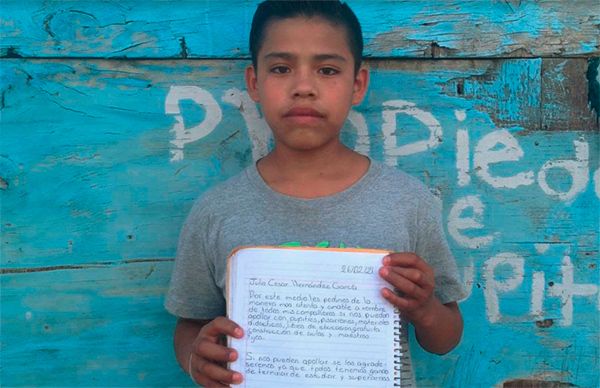 Propiedad
de
26/02/21
Julio Cesar Hernández García
Por este medio les pedimos de la
manera mas atenta y amable a nombre
de todos mis compañeros si nos puedan
apollar con pupitres, pisarrones, materiales
didacticos, libros de educacion gratuita
construccion de aulas y maestros
fijos.
Si nos pueden apollar se los agrade-
seremos ya que todos tenemos ganas
de terminar de estudiar y superarnos